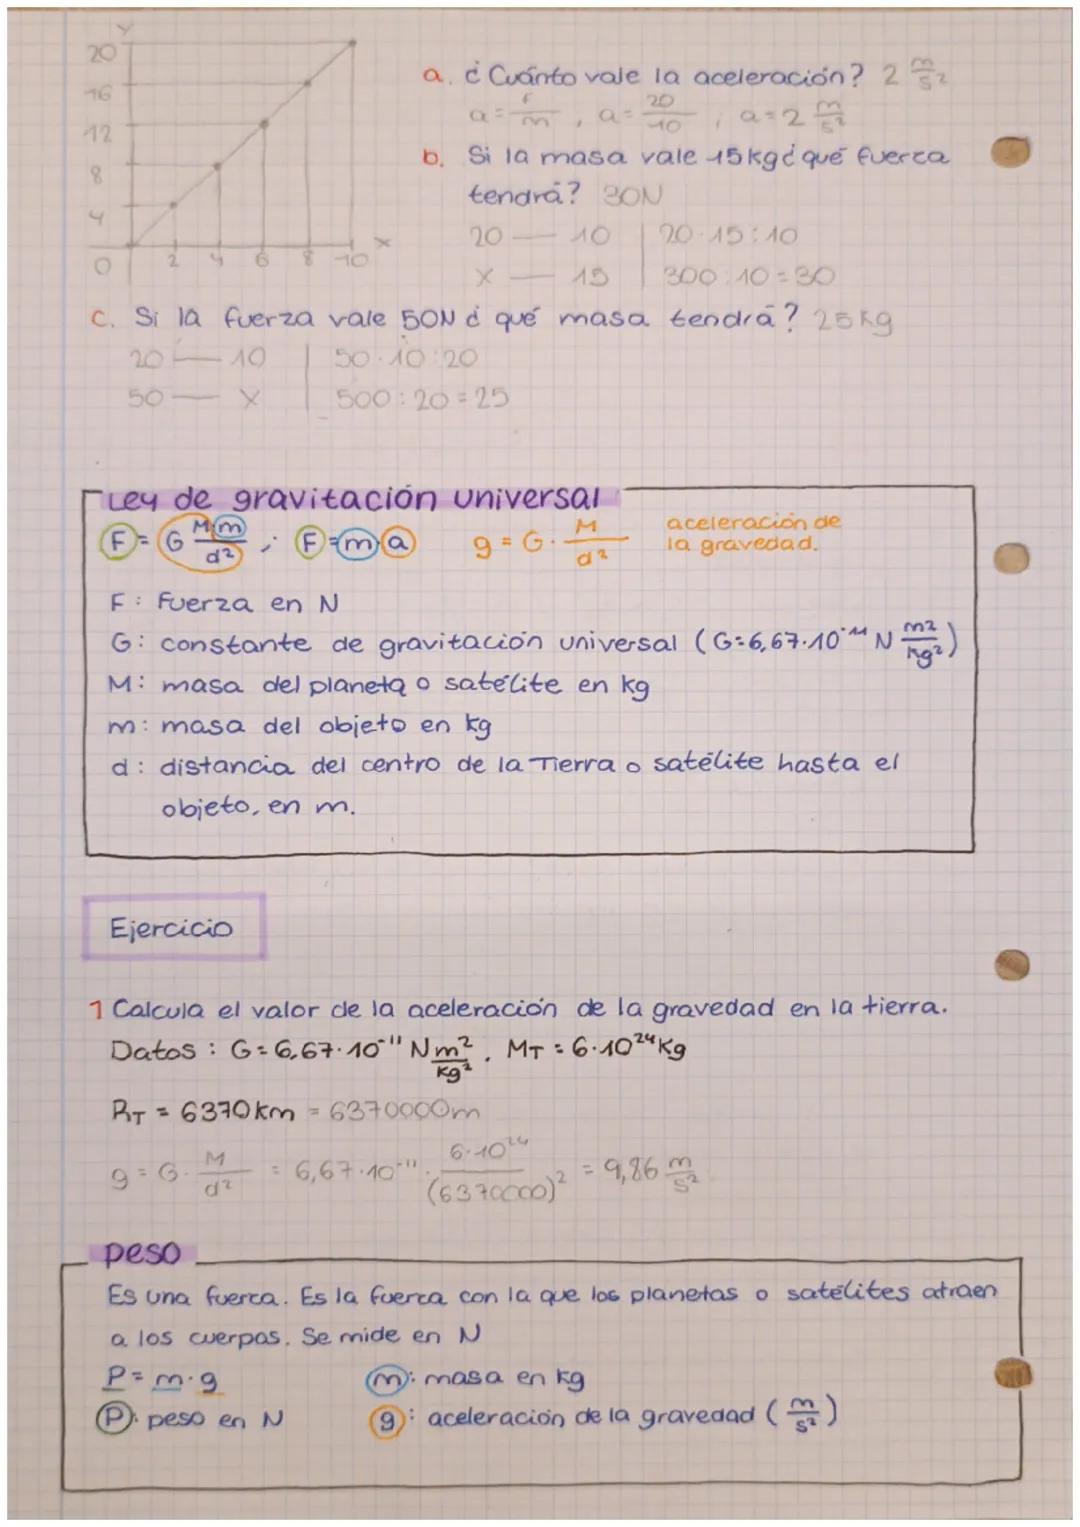 Y
20
16
12
8
4
0 2 4 6 8 10 X
a. ¿Cuánto vale la aceleración? 2 m/s²
a = F/m, a = 20/10 ; a = 2 m/s²
b. Si la masa vale 15kg ¿qué fuerza
tendrá? 30N
20 — 10 | 20·15:10
X — 15 | 300:10=30
c. Si la fuerza vale 50N ¿ qué masa tendrá? 25kg
20 — 10 | 50·10:20
50 — X | 500:20=25
Ley de gravitación universal
F = G M·m/d² ; F = m·a g = G · M/d² aceleración de
la gravedad.
F: Fuerza en N
G: constante de gravitación universal (G=6,67·10⁻¹¹ N m²/kg²)
M: masa del planeta o satélite en kg
m: masa del objeto en kg
d: distancia del centro de la Tierra o satélite hasta el
objeto, en m.
Ejercicio
1 Calcula el valor de la aceleración de la gravedad en la tierra.
Datos: G=6,67·10⁻¹¹ Nm²/kg², M_T = 6·10²⁴kg
R_T = 6370km = 6370000m
g = G · M/d² = 6,67·10⁻¹¹ · 6·10²⁴/(6370000)² = 9,86 m/s²
peso
Es una fuerza. Es la fuerza con la que los planetas o satélites atraen
a los cuerpos. Se mide en N
P = m·g m: masa en kg
P: peso en N g: aceleración de la gravedad (m/s²)